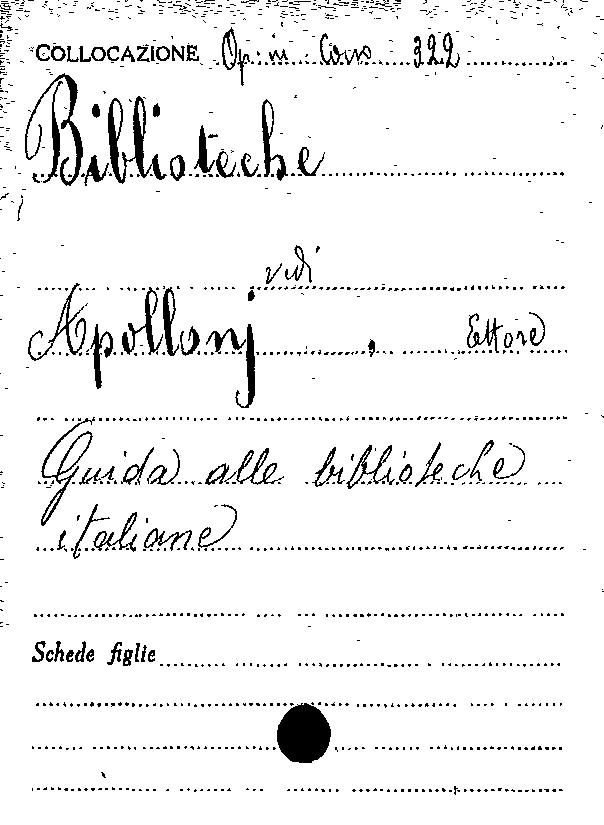 COLLOCAZIONE Op. in Cors 322
Biblioteche
vedi
Apollonj, Ettore
Guida alle biblioteche
italiane
Schede figlie